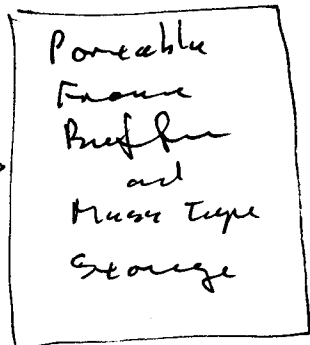 Portable
Frame
Buffer
and
Mass Tape
Storage